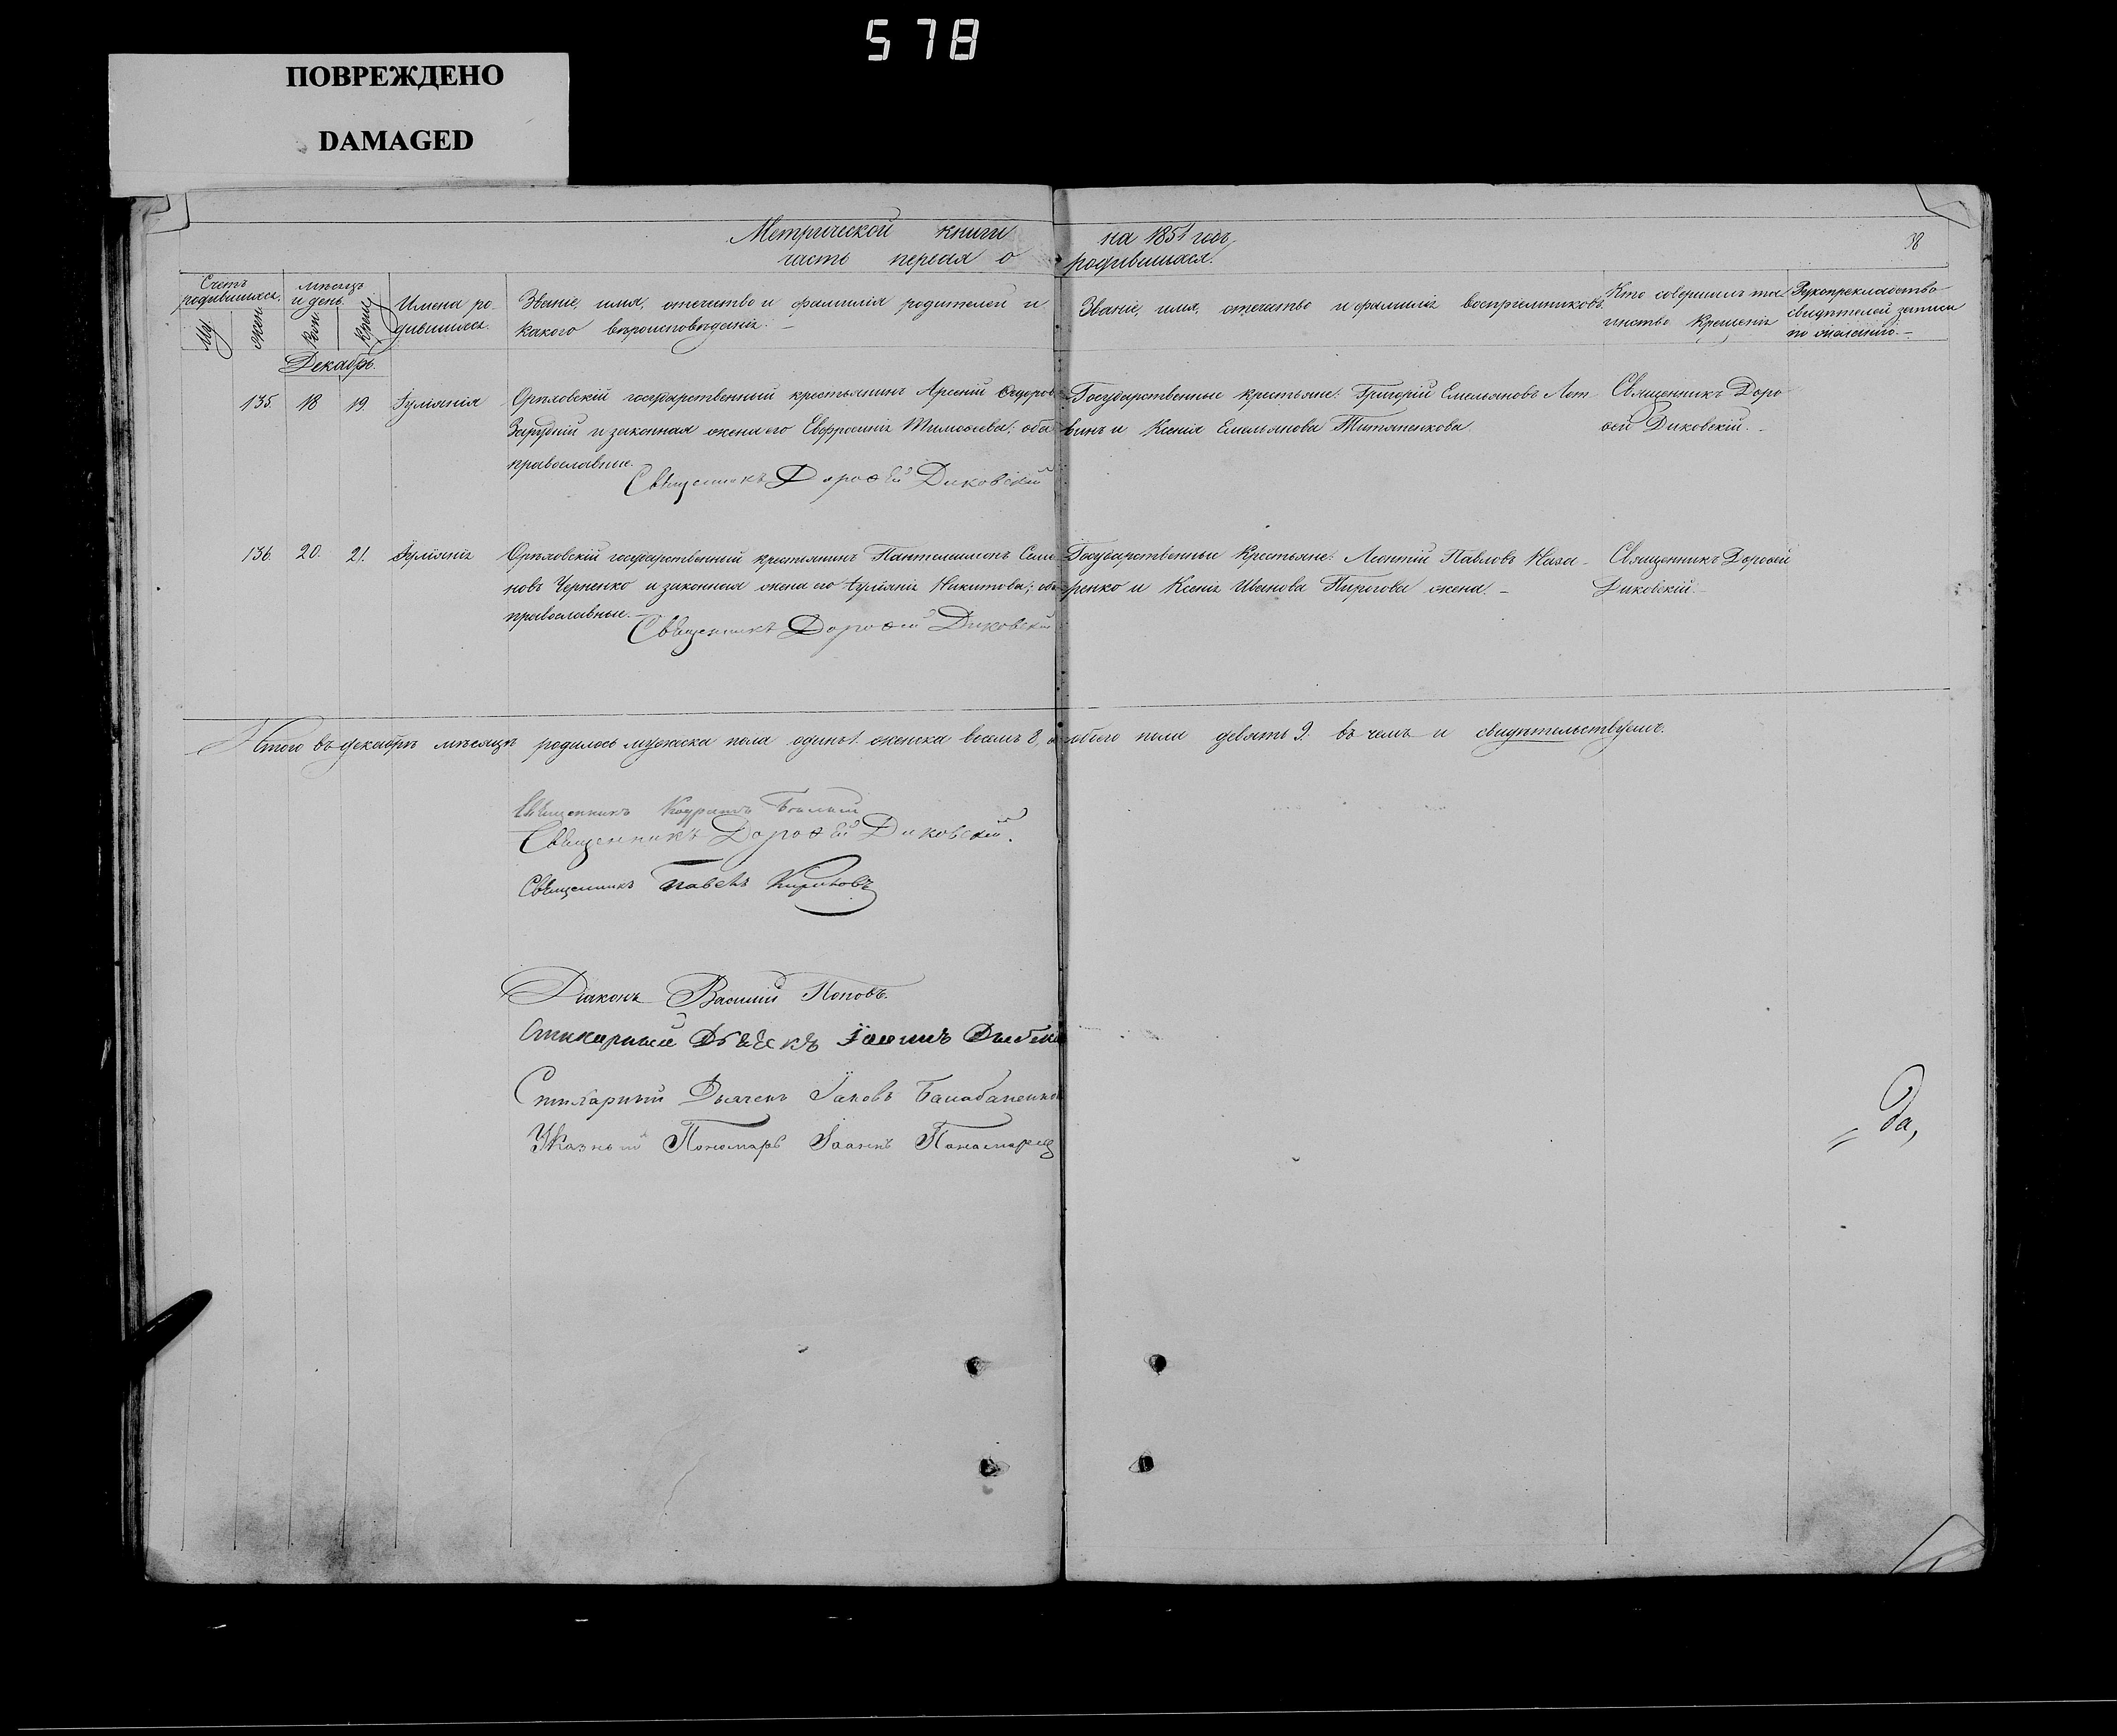 578
ПОВРЕЖДЕНО
DAMAGED
Метрической книги на 1851 годъ,
часть первая о родившихся.
38
Счетъ родившихся.
Му
Жен
мѣсяцъ и день.
Рож
Крещ
Имена родившихся.
Званіе, имя, отечество и фамилія родителей и
какого вѣроисповѣданія. –
Званіе, имя, отечество и фамилія воспріемниковъ.
Кто совершилъ та-
инство Крещенія
Рукоприкладство
свидѣтелей записи
по желанію. –
Декабрь.
135. 18 19. Іуліанія
Орѣховскій государственный крестьянинъ Арсеній Сидоровъ
Зарудній и законная жена его Евфросинія Тимофеева; оба
православные.
Священникъ Дорофей Диковскій
Государственные крестьяне: Григорій Емельяновъ Лот
винъ и Ксенія Емельянова Титяненкова
Священникъ Доро
фей Диковскій. –
136. 20. 21. Іуліанія
Орѣховскій государственный крестьянинъ Пантелеимонъ Семе
новъ Черненко и законная жена его Іуліанія Никитова; оба
православные. –
Священникъ Дорофей Диковскій
Государственные Крестьяне: Леонтій Павловъ Наза-
ренко и Ксенія Иванова Пирогова жена. –
Священникъ Дорофей
Диковскій. –
Итого въ декабрѣ мѣсяцѣ родилось мужеска пола одинъ 1. женска восемь 8, а обоего пола девять 9. въ чемъ и свидѣтельствуемъ.
Священникъ Кодратъ Бѣлый
Священникъ Дорофей Диковскій.
Священникъ Павелъ
Діаконъ Василій Поповъ.
Стихарный Дьячекъ Іаковъ Балабаненко
Указный Пономарь Іоаннъ
= Да,